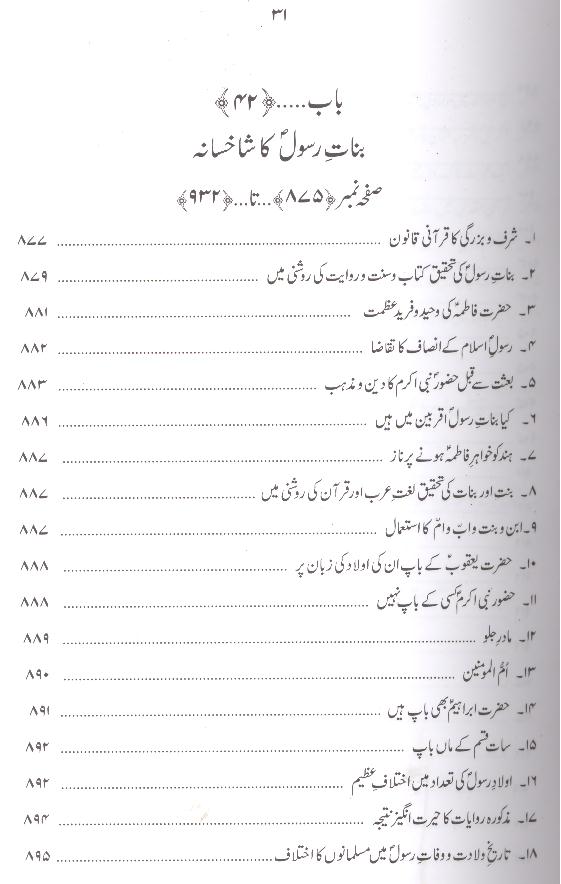 ۳۱
باب.....﴿۴۲﴾
بناتِ رسولؐ کا شاخسانہ
صفحہ نمبر﴿۸۷۵﴾...تا...﴿۹۳۲﴾
۱۔ شرف و بزرگی کا قرآنی قانون ........ ۸۷۷
۲۔ بناتِ رسولؐ کی تحقیق کتاب و سنت و روایت کی روشنی میں ........ ۸۷۹
۳۔ حضرت فاطمہؑ کی وحید و فرید عظمت ........ ۸۸۱
۴۔ رسولِ اسلام کے انصاف کا تقاضا ........ ۸۸۲
۵۔ بعثت سے قبل حضورؐ نبی اکرم کا دین و مذہب ........ ۸۸۳
۶۔ کیا بناتِ رسولؐ اقربین میں ہیں ........ ۸۸۶
۷۔ ہند کو خواہرِ فاطمہؑ ہونے پر ناز ........ ۸۸۷
۸۔ بنت اور بنات کی تحقیق لغتِ عرب اور قرآن کی روشنی میں ........ ۸۸۷
۹۔ ابن و بنت و ابّ و امّ کا استعمال ........ ۸۸۷
۱۰۔ حضرت یعقوبؑ کے باپ ان کی اولاد کی زبان پر ........ ۸۸۸
۱۱۔ حضورؐ نبی اکرمؐ کسی کے باپ نہیں ........ ۸۸۸
۱۲۔ مادرِ جلو ........ ۸۸۹
۱۳۔ اُمّ المومنین ........ ۸۹۰
۱۴۔ حضرت ابراہیمؑ بھی باپ ہیں ........ ۸۹۱
۱۵۔ سات قسم کے ماں باپ ........ ۸۹۲
۱۶۔ اولادِ رسولؐ کی تعداد میں اختلافِ عظیم ........ ۸۹۲
۱۷۔ مذکورہ روایات کا حیرت انگیز نتیجہ ........ ۸۹۴
۱۸۔ تاریخِ ولادت و وفاتِ رسولؐ میں مسلمانوں کا اختلاف ........ ۸۹۵